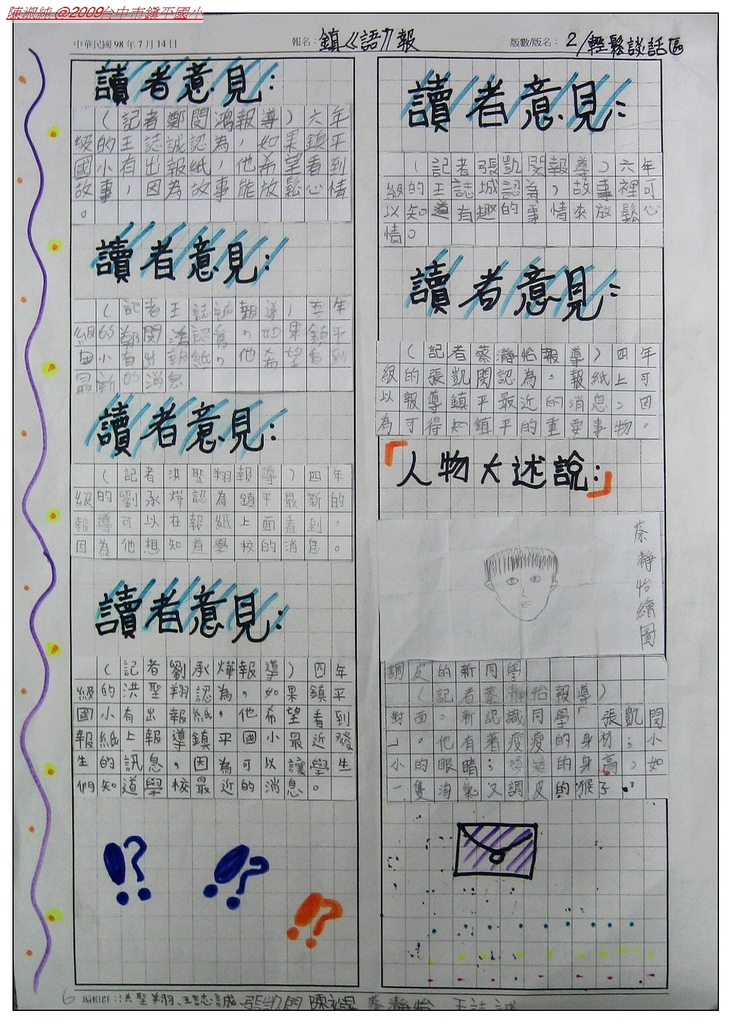 陳淑純 @2009台中市鎮平國小
中華民國 98 年 7 月 14 日
報名：鎮ㄍ語ㄌ報
版數/版名： 2/輕鬆談話區
讀者意見：
（記者鄭閔鴻報導）六年
級的王誌誠認為，如果鎮平
國小有出報紙，他希望看到
故事，因為故事能放鬆心情
。
讀者意見：
（記者王誌誠報導）五年
級的鄭閔鴻認為，如果鎮平
國小有出報紙，他希望看到
最新的消息
讀者意見：
（記者洪聖翔報導）四年
級的劉承燁認為鎮平最新的
報導可以在報紙上面看到，
因為他想知道學校的消息。
讀者意見：
（記者劉承燁報導）四年
級的洪聖翔認為，如果鎮平
國小有出報紙，他希望看到
報紙上報導鎮平國小最近發
生的訊息，因為可以讓學生
們知道學校最近的消息。
!? !? !?
讀者意見：
（記者張凱閔報導）六年
級的王誌城認為，故事裡可
以知道有趣的事情來放鬆心
情。
讀者意見：
（記者蔡靜怡報導）四年
級的張凱閔認為，報紙上可
以報導鎮平最近的消息，因
為可得知鎮平的重要事物。
「人物大述說：」
蔡靜怡繪圖
調皮的新同學
（記者蔡靜怡報導）
對面，新認識同學「張凱閔
」。他有著瘦瘦的身材；小
小的眼睛；的身高，如
一隻淘氣又調皮的猴子。
6
洪聖翔、王誌誠、張凱閔 陳 蔡靜怡 王誌誠